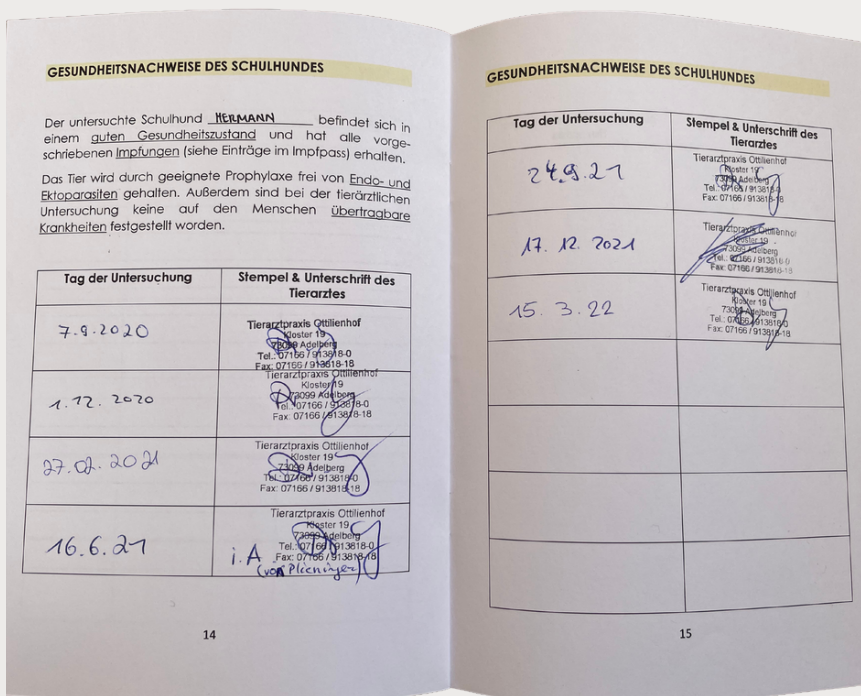 GESUNDHEITSNACHWEISE DES SCHULHUNDES
Der untersuchte Schulhund HERMANN befindet sich in
einem guten Gesundheitszustand und hat alle vorge-
schriebenen Impfungen (siehe Einträge im Impfpass) erhalten.
Das Tier wird durch geeignete Prophylaxe frei von Endo- und
Ektoparasiten gehalten. Außerdem sind bei der tierärztlichen
Untersuchung keine auf den Menschen übertragbare
Krankheiten festgestellt worden.
Tag der Untersuchung
Stempel & Unterschrift des
Tierarztes
7.9.2020
Tierarztpraxis Ottilienhof
Kloster 19
73099 Adelberg
Tel.: 07166 / 913818-0
Fax: 07166 / 913818-18
1.12. 2020
Tierarztpraxis Ottilienhof
Kloster 19
73099 Adelberg
Tel.: 07166 / 913818-0
Fax: 07166 / 913818-18
27.02.2021
Tierarztpraxis Ottilienhof
Kloster 19
73099 Adelberg
Tel.: 07166 / 913818-0
Fax: 07166 / 913818-18
16.6.21
Tierarztpraxis Ottilienhof
Kloster 19
73099 Adelberg
Tel.: 07166 / 913818-0
i.A Fax: 07166 / 913818-18
(von Plieninger)
14
GESUNDHEITSNACHWEISE DES SCHULHUNDES
Tag der Untersuchung
Stempel & Unterschrift des
Tierarztes
24.9.21
Tierarztpraxis Ottilienhof
Kloster 19
73099 Adelberg
Tel.: 07166 / 913818-0
Fax: 07166 / 913818-18
17. 12. 2021
Tierarztpraxis Ottilienhof
Kloster 19
73099 Adelberg
Tel.: 07166 / 913818-0
Fax: 07166 / 913818-18
15. 3. 22
Tierarztpraxis Ottilienhof
Kloster 19
73099 Adelberg
Tel.: 07166 / 913818-0
Fax: 07166 / 913818-18
15